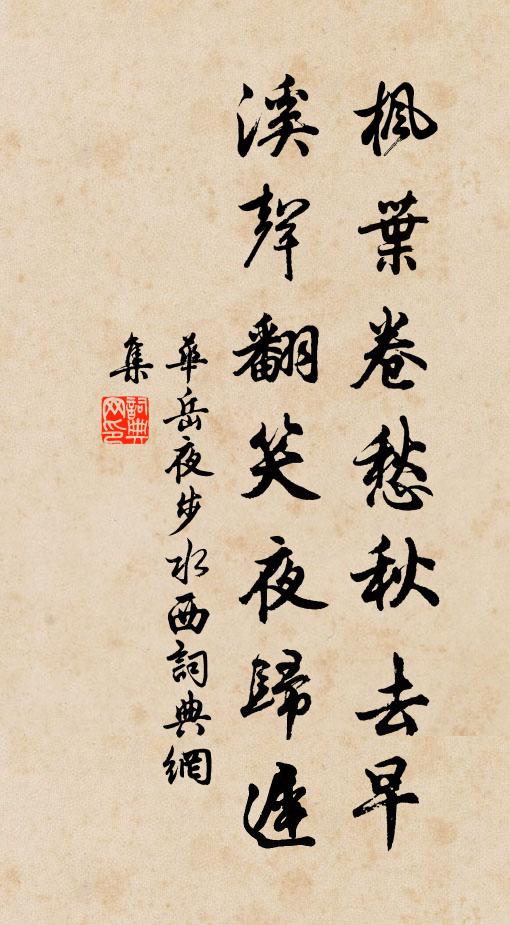 楓葉卷愁秋去早
溪聲翻笑夜歸遲
華岳夜步水西詞典網
集
詞典網印